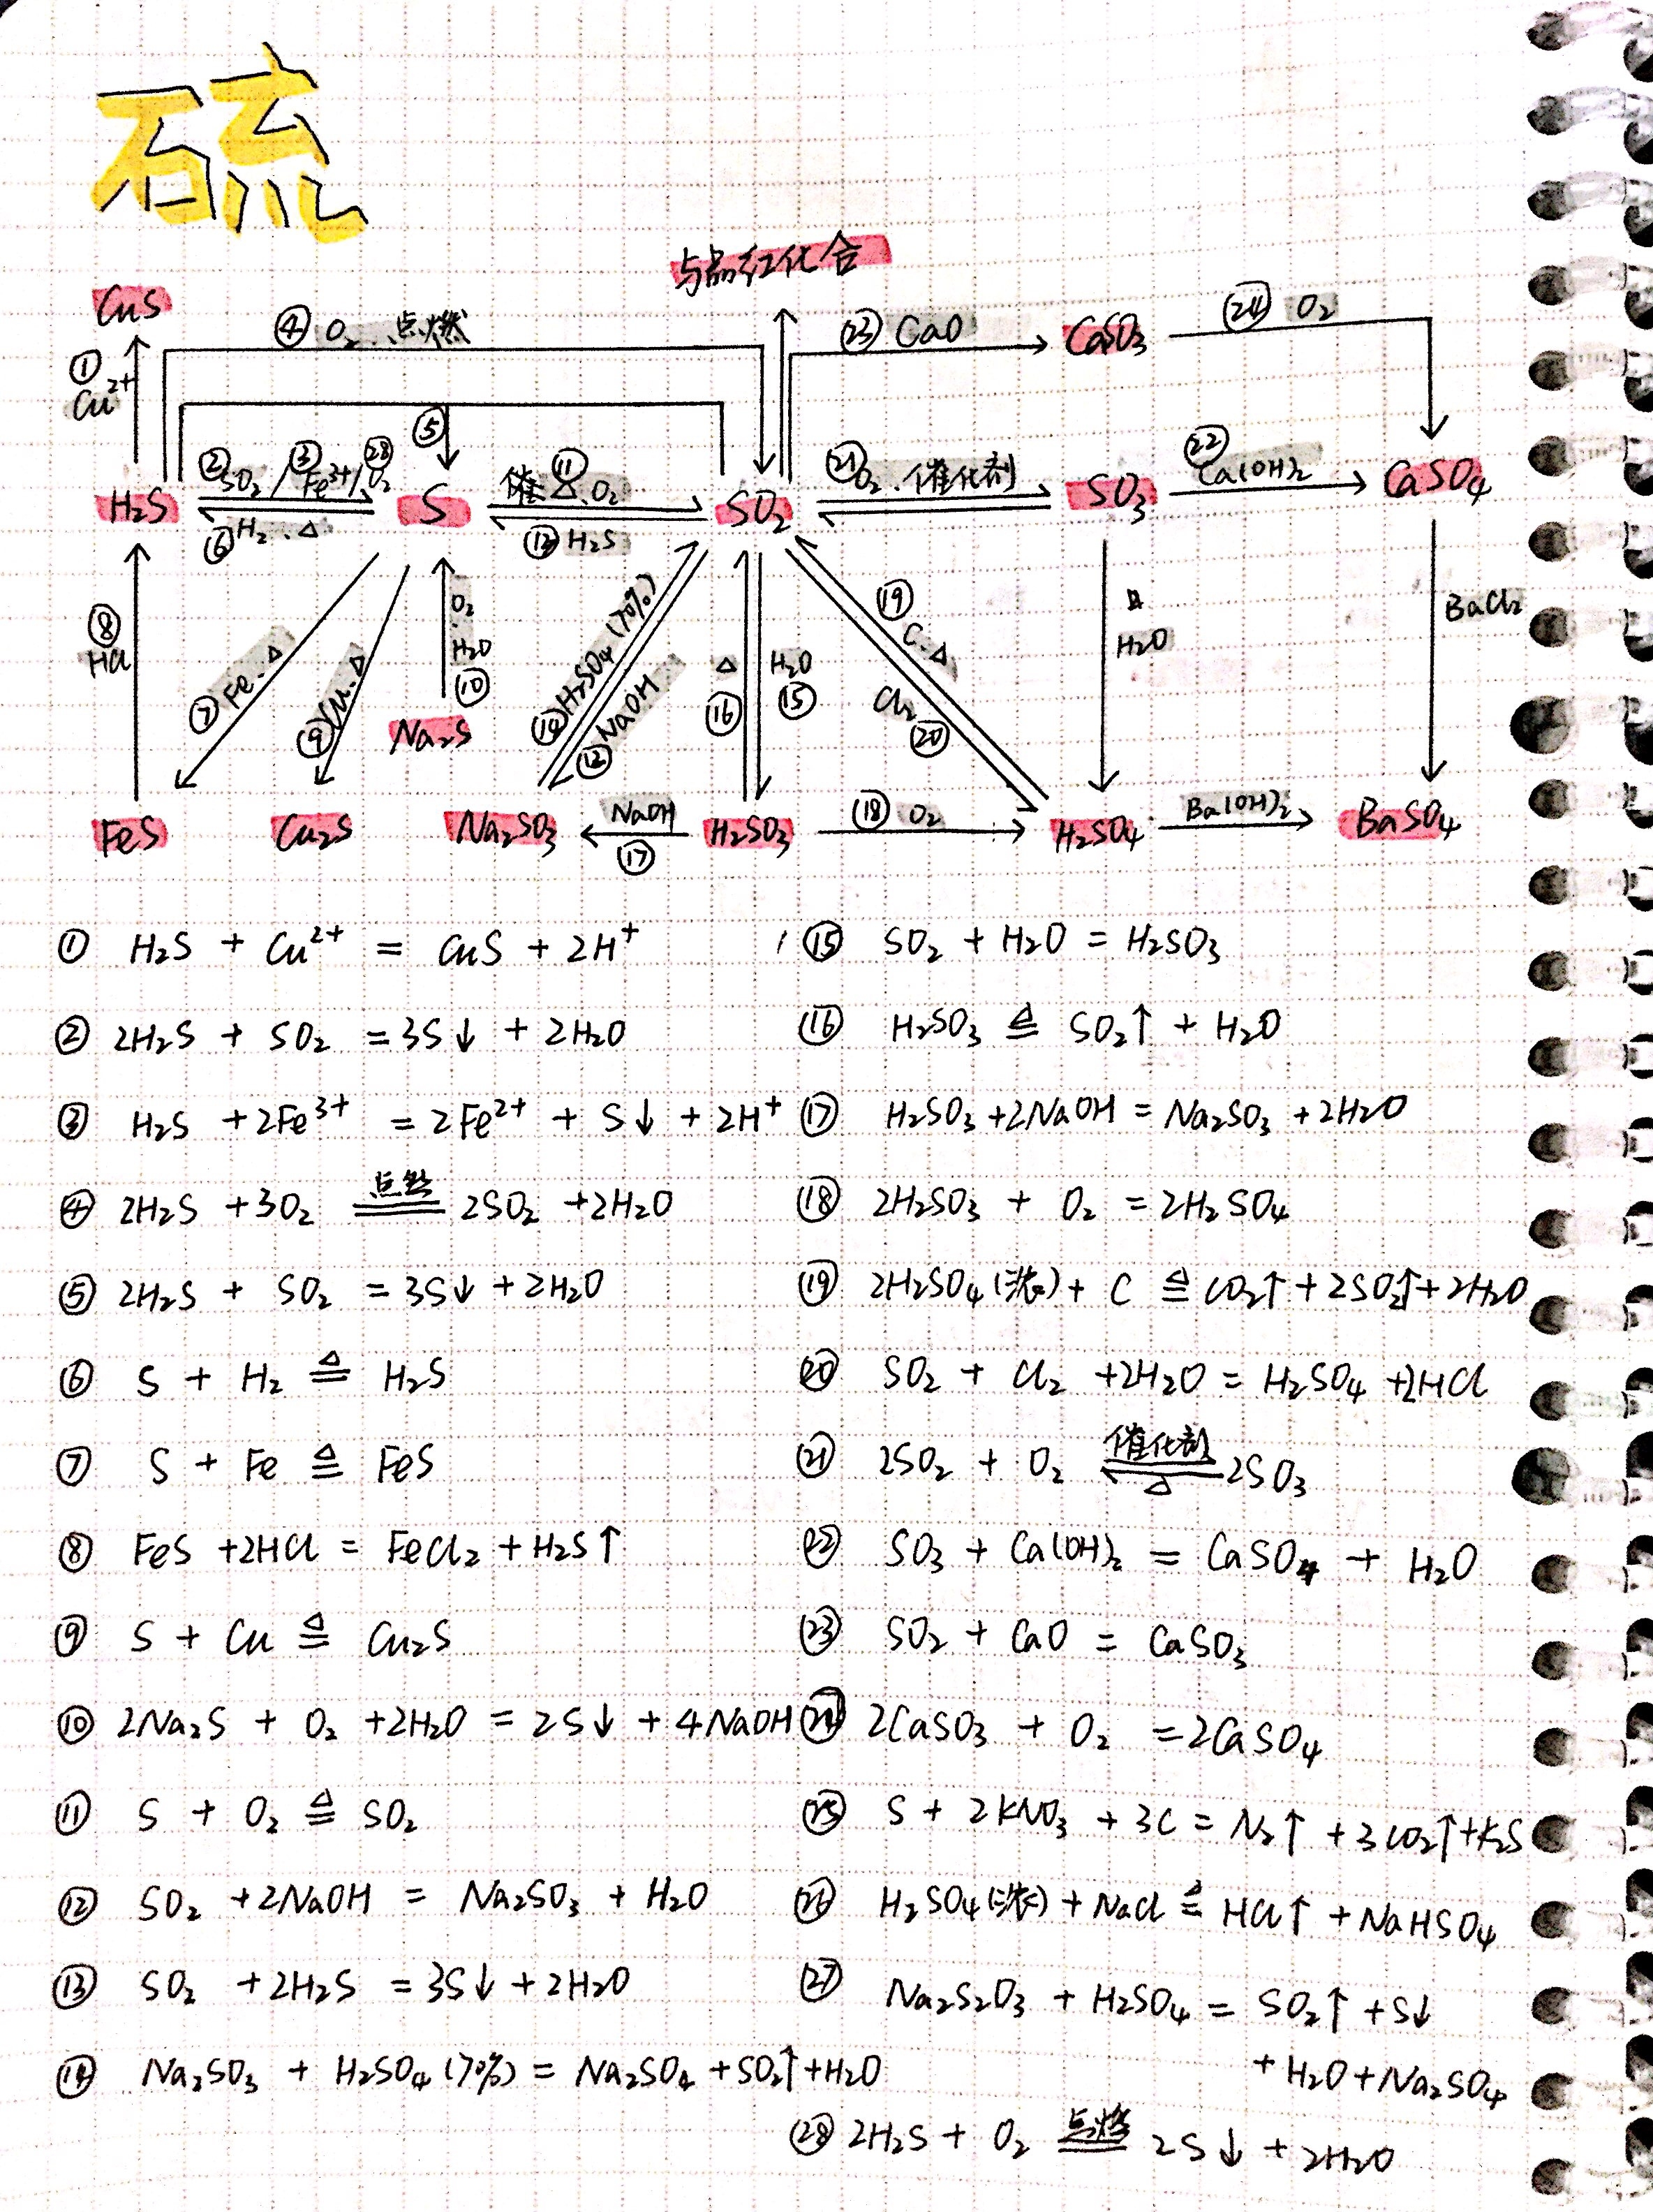 硫
与品红化合
CuS
④ O₂ 点燃
㉓ CaO
CaSO₃
㉔ O₂
①
Cu²⁺
⑤
②SO₂ / ③Fe³⁺ / ㉘O₂
催 △ ⑪ O₂
㉑O₂ . 催化剂
㉒
Ca(OH)₂
H₂S
S
SO₂
SO₃
CaSO₄
⑥ H₂ . △
⑬ H₂S
⑧
HCl
⑦ Fe . △
⑨ Cu . △
O₂
H₂O
⑩
Na₂S
⑭ H₂SO₄ (70%)
⑫ NaOH
△
⑯
H₂O
⑮
⑲
C . △
Cl₂
⑳
H₂O
BaCl₂
FeS
Cu₂S
Na₂SO₃
NaOH
⑰
H₂SO₃
⑱ O₂
H₂SO₄
Ba(OH)₂
BaSO₄
① H₂S + Cu²⁺ = CuS + 2H⁺
② 2H₂S + SO₂ = 3S↓ + 2H₂O
③ H₂S + 2Fe³⁺ = 2Fe²⁺ + S↓ + 2H⁺
④ 2H₂S + 3O₂ 点燃 2SO₂ + 2H₂O
⑤ 2H₂S + SO₂ = 3S↓ + 2H₂O
⑥ S + H₂ ≙ H₂S
⑦ S + Fe ≙ FeS
⑧ FeS + 2HCl = FeCl₂ + H₂S↑
⑨ S + Cu ≙ Cu₂S
⑩ 2Na₂S + O₂ + 2H₂O = 2S↓ + 4NaOH
⑪ S + O₂ ≙ SO₂
⑫ SO₂ + 2NaOH = Na₂SO₃ + H₂O
⑬ SO₂ + 2H₂S = 3S↓ + 2H₂O
⑭ Na₂SO₃ + H₂SO₄ (70%) = Na₂SO₄ + SO₂↑ + H₂O
⑮ SO₂ + H₂O = H₂SO₃
⑯ H₂SO₃ ≙ SO₂↑ + H₂O
⑰ H₂SO₃ + 2NaOH = Na₂SO₃ + 2H₂O
⑱ 2H₂SO₃ + O₂ = 2H₂SO₄
⑲ 2H₂SO₄ (浓) + C ≙ CO₂↑ + 2SO₂↑ + 2H₂O
⑳ SO₂ + Cl₂ + 2H₂O = H₂SO₄ + 2HCl
㉑ 2SO₂ + O₂ 催化剂 △ 2SO₃
㉒ SO₃ + Ca(OH)₂ = CaSO₄ + H₂O
㉓ SO₂ + CaO = CaSO₃
㉔ 2CaSO₃ + O₂ = 2CaSO₄
㉕ S + 2KNO₃ + 3C = N₂↑ + 3CO₂↑ + K₂S
㉖ H₂SO₄ (浓) + NaCl ≙ HCl↑ + NaHSO₄
㉗ Na₂S₂O₃ + H₂SO₄ = SO₂↑ + S↓
+ H₂O + Na₂SO₄
㉘ 2H₂S + O₂ 点燃 2S↓ + 2H₂O